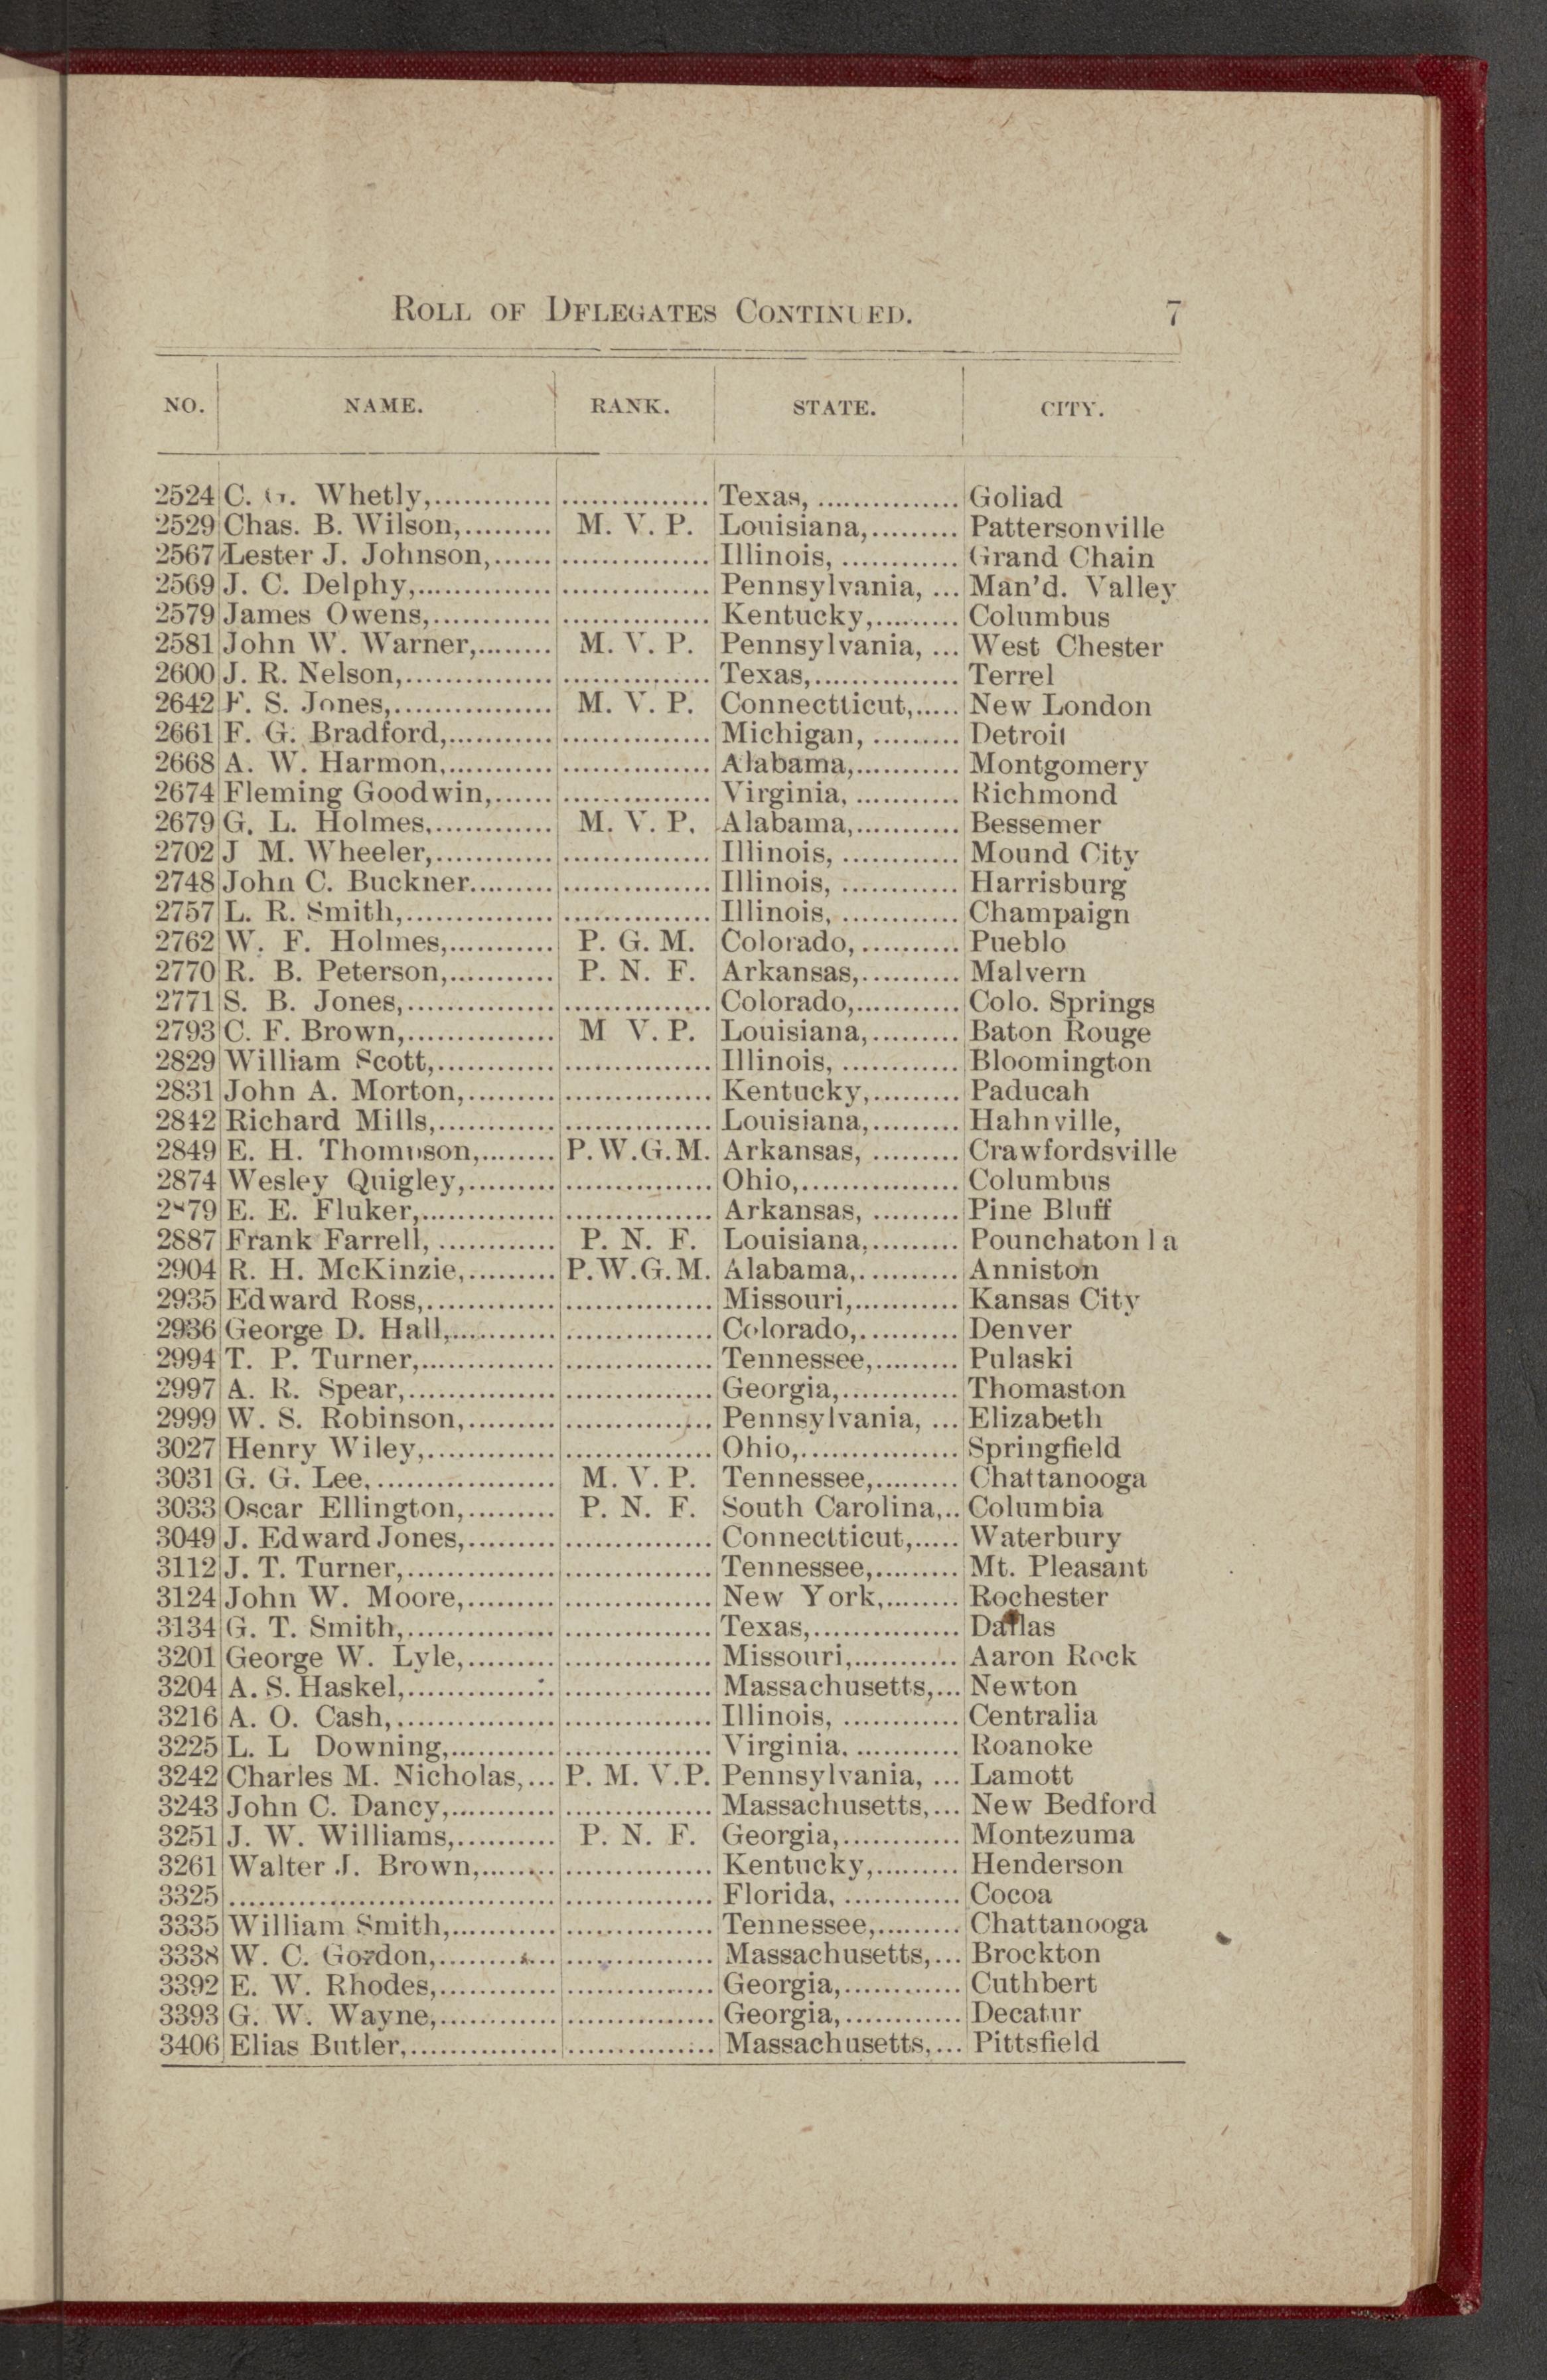 ROLL OF DELEGATES CONTINUED. 7
NO. NAME. RANK. STATE. CITY.
2524 C. G. Whetly, Texas, Goliad
2529 Chas. B. Wilson, M. V. P. Louisiana, Pattersonville
2567 Lester J. Johnson, Illinois, Grand Chain
2569 J. C. Delphy, Pennsylvania, Man'd. Valley
2579 James Owens, Kentucky, Columbus
2581 John W. Warner, M. V. P. Pennsylvania, West Chester
2600 J. R. Nelson, Texas, Terrel
2642 F. S. Jones, M. V. P. Connectticut, New London
2661 F. G. Bradford, Michigan, Detroit
2668 A. W. Harmon, Alabama, Montgomery
2674 Fleming Goodwin, Virginia, Richmond
2679 G. L. Holmes, M. V. P. Alabama, Bessemer
2702 J M. Wheeler, Illinois, Mound City
2748 John C. Buckner Illinois, Harrisburg
2757 L. R. Smith, Illinois, Champaign
2762 W. F. Holmes, P. G. M. Colorado, Pueblo
2770 R. B. Peterson, P. N. F. Arkansas, Malvern
2771 S. B. Jones, Colorado, Colo. Springs
2793 C. F. Brown, M V. P. Louisiana, Baton Rouge
2829 William Scott, Illinois, Bloomington
2831 John A. Morton, Kentucky, Paducah
2842 Richard Mills, Louisiana, Hahnville,
2849 E. H. Thompson, P. W. G. M. Arkansas, Crawfordsville
2874 Wesley Quigley, Ohio, Columbus
2879 E. E. Fluker, Arkansas, Pine Bluff
2887 Frank Farrell, P. N. F. Louisiana, Pounchaton la
2904 R. H. McKinzie, P. W. G. M. Alabama, Anniston
2935 Edward Ross, Missouri, Kansas City
2936 George D. Hall, Colorado, Denver
2994 T. P. Turner, Tennessee, Pulaski
2997 A. R. Spear, Georgia, Thomaston
2999 W. S. Robinson, Pennsylvania, Elizabeth
3027 Henry Wiley, Ohio, Springfield
3031 G. G. Lee, M. V. P. Tennessee, Chattanooga
3033 Oscar Ellington, P. N. F. South Carolina, Columbia
3049 J. Edward Jones, Connectticut, Waterbury
3112 J. T. Turner, Tennessee, Mt. Pleasant
3124 John W. Moore, New York, Rochester
3134 G. T. Smith, Texas, Dallas
3201 George W. Lyle, Missouri, Aaron Rock
3204 A. S. Haskel, Massachusetts, Newton
3216 A. O. Cash, Illinois, Centralia
3225 L. L Downing, Virginia. Roanoke
3242 Charles M. Nicholas, P. M. V. P. Pennsylvania, Lamott
3243 John C. Dancy, Massachusetts, New Bedford
3251 J. W. Williams, P. N. F. Georgia, Montezuma
3261 Walter J. Brown, Kentucky, Henderson
3325 Florida, Cocoa
3335 William Smith, Tennessee, Chattanooga
3338 W. C. Gordon, Massachusetts, Brockton
3392 E. W. Rhodes, Georgia, Cuthbert
3393 G. W. Wayne, Georgia, Decatur
3406 Elias Butler, Massachusetts, Pittsfield